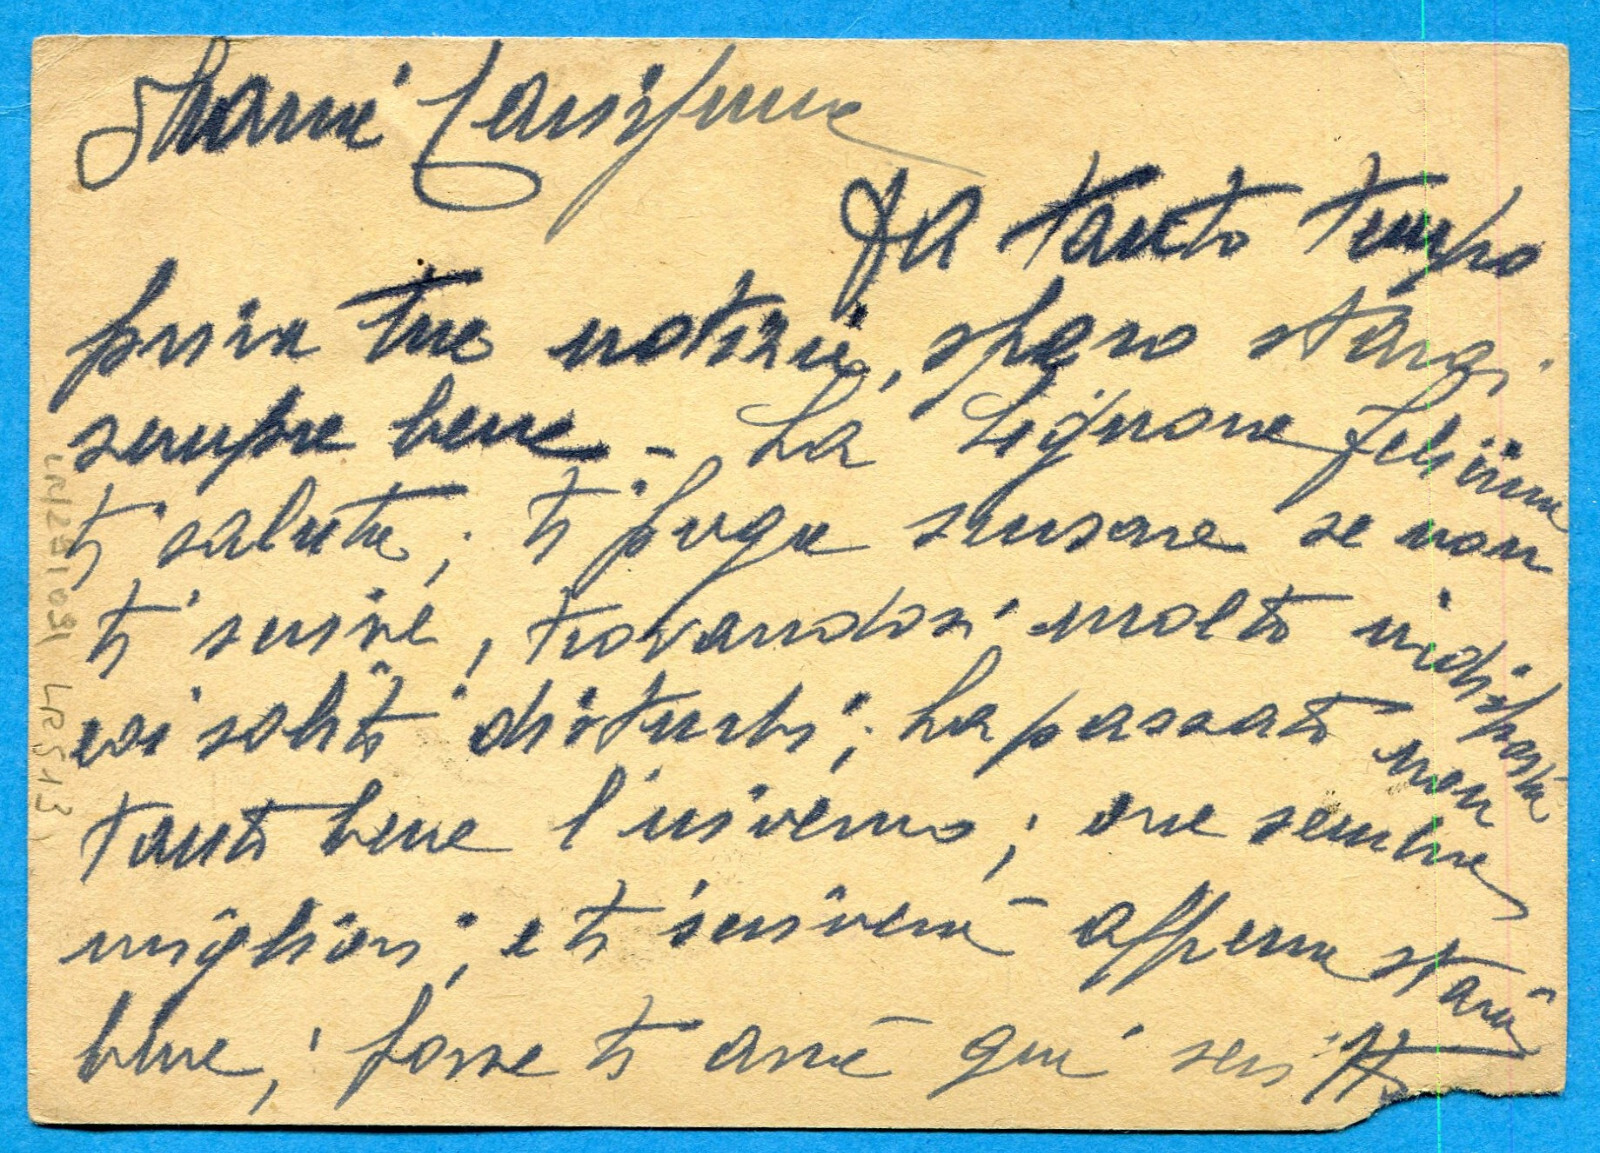 Marie Carissima
Da tanto tempo
priva tue notizie, spero starai
sempre bene - La Signora
ti saluta; ti prega scusare se non
ti scrive, trovandosi molto indisposta
coi soliti disturbi; ha passato non
tanto bene l'inverno; ora sembra
migliori; e ti scriverà appena starà
bene; forse ti avrà già scritto